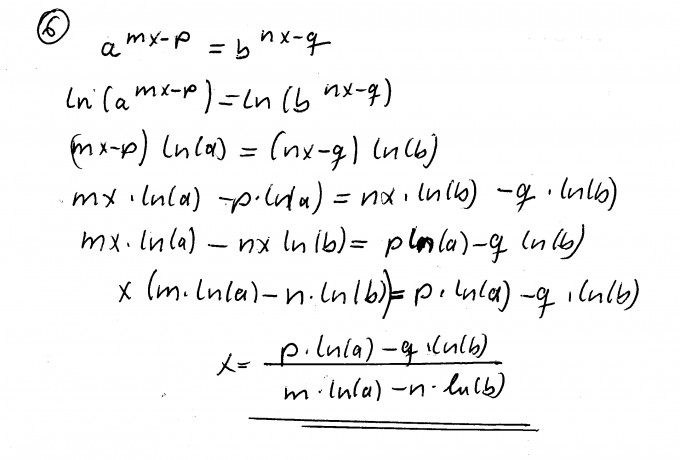 ⑥
a^{mx-p} = b^{nx-q}
ln(a^{mx-p}) = ln(b^{nx-q})
(mx-p) ln(a) = (nx-q) ln(b)
mx · ln(a) - p · ln(a) = nx · ln(b) - q · ln(b)
mx · ln(a) - nx ln(b) = p ln(a) - q ln(b)
x (m · ln(a) - n · ln(b)) = p · ln(a) - q · ln(b)
x = \frac{p · ln(a) - q · ln(b)}{m · ln(a) - n · ln(b)}